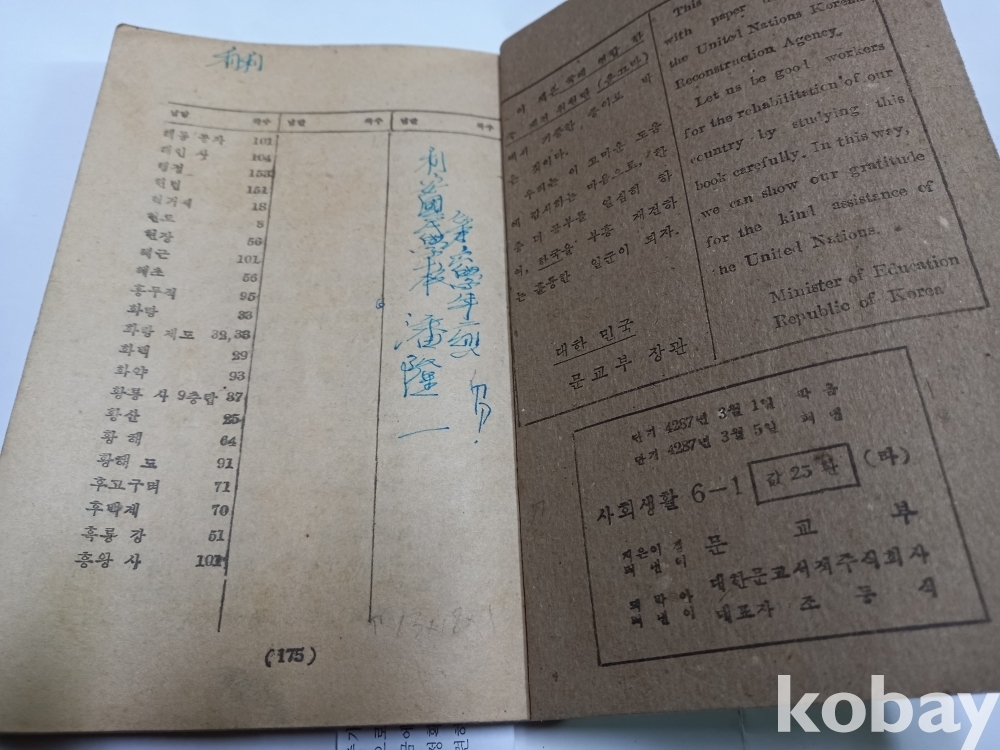 낱말 쪽수 낱말 쪽수 낱말 쪽수
해동 통자 101
해인 사 104
행정 153
헌법 151
혁거세 18
현토 8
현장 56
혜근 101
혜초 56
홍무적 95
화랑 33
화랑 제도 32,33
화백 29
화약 93
황룡 사 9층탑 37
황산 25
황해 64
황해 도 91
후고구려 71
후백제 70
흑룡 강 51
흥왕 사 101
(175)
第六學年
潘隆一
This
with paper
the United Nations Korea
Reconstruction Agency.
Let us be good workers
for the rehabilitation of our
country by studying this
book carefully. In this way,
we can show our gratitude
for the kind assistance of
he United Nations.
Minister of Education
Republic of Korea
는 죄이다.
우리는 이 고마운 도움
에 감사하는 마음으로, 한
층 더 공부를 열심히 하
여, 한국을 부흥 재건하
는 훌륭한 일군이 되자.
대한 민국
문교부 장관
단기 4287년 3월 1일 박음
단기 4287년 3월 5일 펴냄
사회생활 6-1 값 25환 (타)
지은이 겸
펴낸이 문교부
박아
펴낸이 대한문교서적주식회사
대표자 조동식
kobay